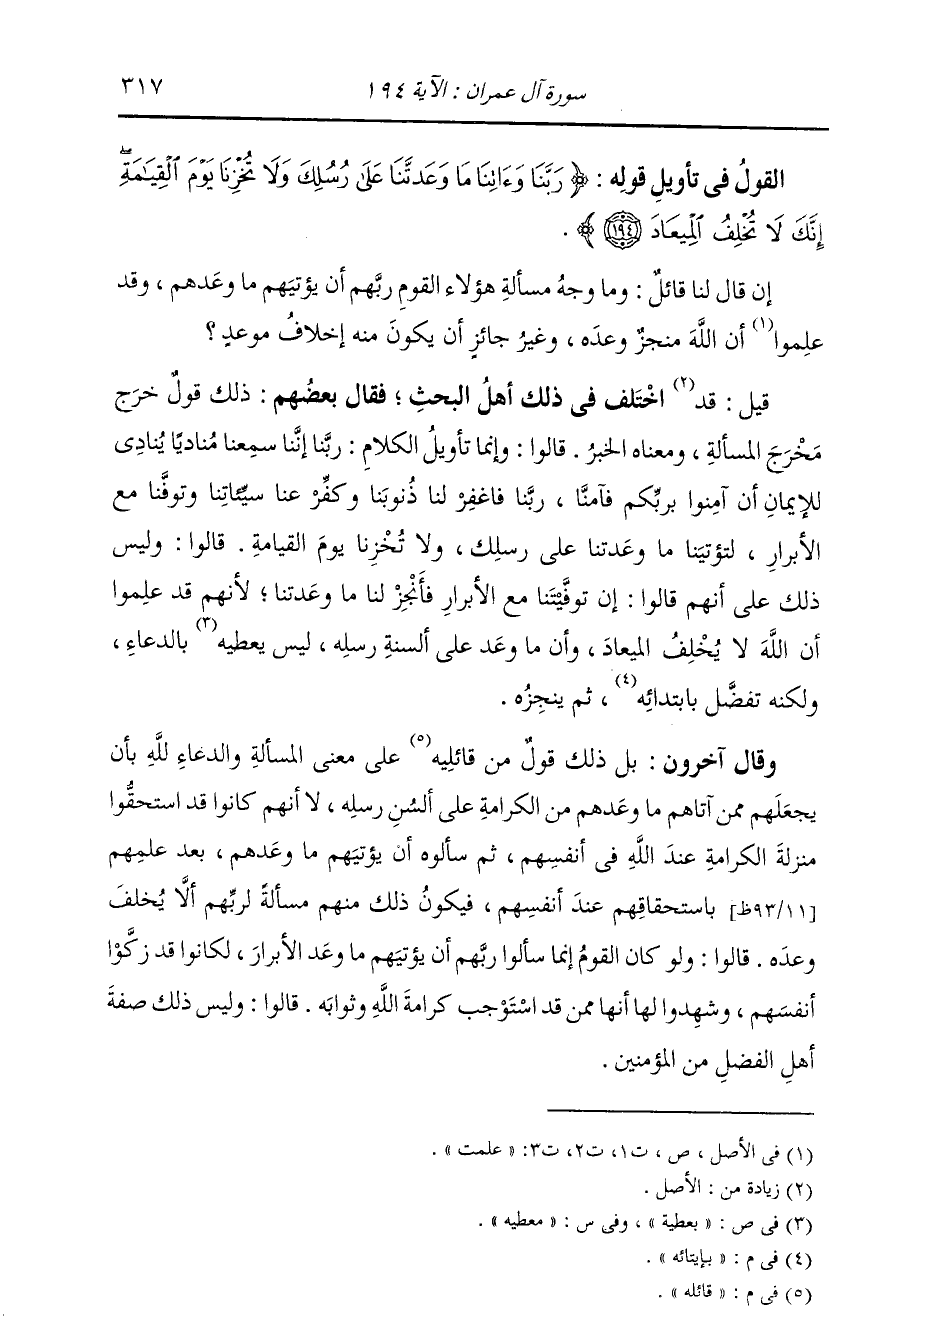 سورة آل عمران : الآية ١٩٤ ٣١٧
القولُ فى تأويلِ قولِه : ﴿ رَبَّنَا وَءَاتِنَا مَا وَعَدتَّنَا عَلَىٰ رُسُلِكَ وَلَا تُخْزِنَا يَوْمَ ٱلْقِيَـٰمَةِۖ
إِنَّكَ لَا تُخْلِفُ ٱلْمِيعَادَ ١٩٤ ﴾ .
إن قال لنا قائلٌ : وما وجهُ مسألةِ هؤلاء القومِ ربَّهم أن يؤتيَهم ما وعَدهم ، وقد
علِموا(١) أن اللَّهَ منجزٌ وعدَه ، وغيرُ جائزٍ أن يكونَ منه إخلافُ موعدٍ ؟
قيل : قد(٢) اخْتَلف فى ذلك أهلُ البحثِ ؛ فقال بعضُهم : ذلك قولٌ خرَج
مَخْرَجَ المسألةِ ، ومعناه الخبرُ . قالوا : وإنما تأويلُ الكلامِ : ربَّنا إنَّنا سمِعنا مُناديًا يُنادِى
للإيمانِ أن آمِنوا بربِّكم فآمنَّا ، ربَّنا فاغفِرْ لنا ذُنوبَنا وكفِّرْ عنا سيِّئاتِنا وتوفَّنا مع
الأبرارِ ، لتؤتيَنا ما وعَدتنا على رسلِك ، ولا تُخْزِنا يومَ القيامةِ . قالوا : وليس
ذلك على أنهم قالوا : إن توفَّيْتَنا مع الأبرارِ فأَنْجِزْ لنا ما وعَدتنا ؛ لأنهم قد علِموا
أن اللَّهَ لا يُخْلِفُ الميعادَ ، وأن ما وعَد على ألسنةِ رسلِه ، ليس يعطيه(٣) بالدعاءِ ،
ولكنه تفضَّل بابتدائِه(٤) ، ثم ينجِزُه .
وقال آخرون : بل ذلك قولٌ من قائلِيه(٥) على معنى المسألةِ والدعاءِ للَّهِ بأن
يجعَلَهم ممن آتاهم ما وعَدهم من الكرامةِ على ألسُنِ رسلِه ، لا أنهم كانوا قد استحقُّوا
منزلةَ الكرامةِ عندَ اللَّهِ فى أنفسِهم ، ثم سألوه أن يؤتيَهم ما وعَدهم ، بعد علمِهم
[٩٣/١١ظ] باستحقاقِهم عندَ أنفسِهم ، فيكونُ ذلك منهم مسألةً لربِّهم ألَّا يُخلفَ
وعدَه . قالوا : ولو كان القومُ إنما سألوا ربَّهم أن يؤتيَهم ما وعَد الأبرارَ ، لكانوا قد زكَّوْا
أنفسَهم ، وشهِدوا لها أنها ممن قد اسْتَوْجب كرامةَ اللَّهِ وثوابَه . قالوا : وليس ذلك صفةَ
أهلِ الفضلِ من المؤمنين .
(١) فى الأصل ، ص ، ت١، ت٢، ت٣: « علمت » .
(٢) زيادة من : الأصل .
(٣) فى ص : « بعطية » ، وفى س : « معطيه » .
(٤) فى م : « بإيتائه » .
(٥) فى م : « قائله » .